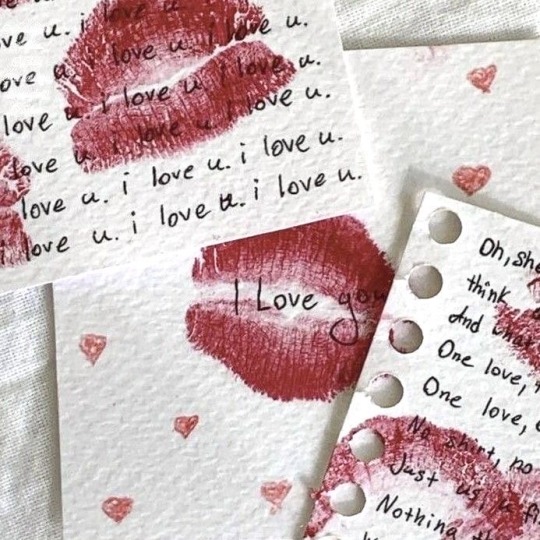 ve u. i love u
love u. i love u. i love u.
love u. i love u. i love u.
love u. i love u. i love u.
love u. i love u. i love u.
i love u. i love u. i love u.
I Love you
Oh, she
think
And what
One love,
One love,
No shirt, no
Just us, u
Nothing th